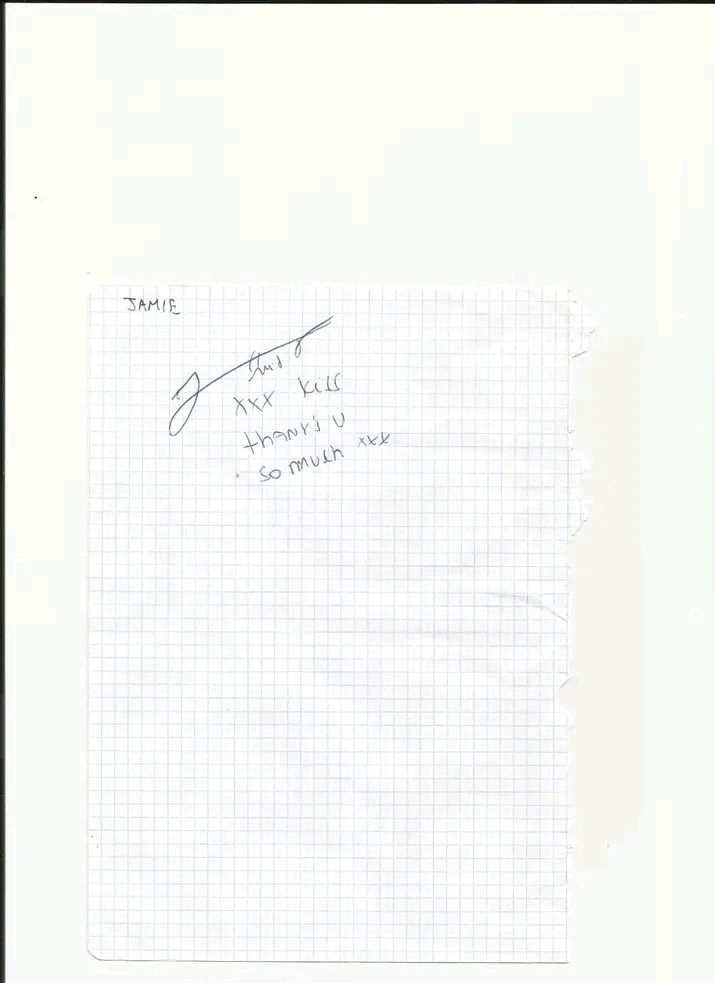 JAMIE
xxx kiss
thanks u
so much xxx